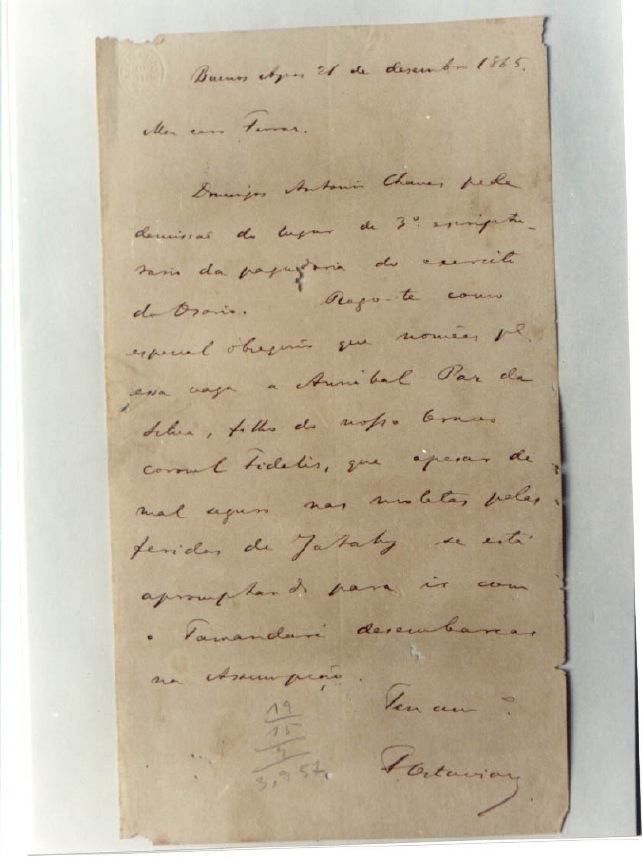 Buenos Ayres 21 de desembro 1865.
Meu caro Ferraz.
Domingos Antonio Chaves pede
demissão do lugar de 3º escriptu-
rario da pagadoria do exercito
do Osorio. Rogo-te como
especial obsequio que nomêes pª
essa vaga a Annibal Paz da
Silva, filho do nosso bravo
coronel Fidelis, que apesar de
mal seguro nas moletas pelas
feridas de Jatahy se está
apromptando para ir com
o Tamandaré desembarcar
na Assumpção.
Teu amº
F Octaviano
19
15
3,957